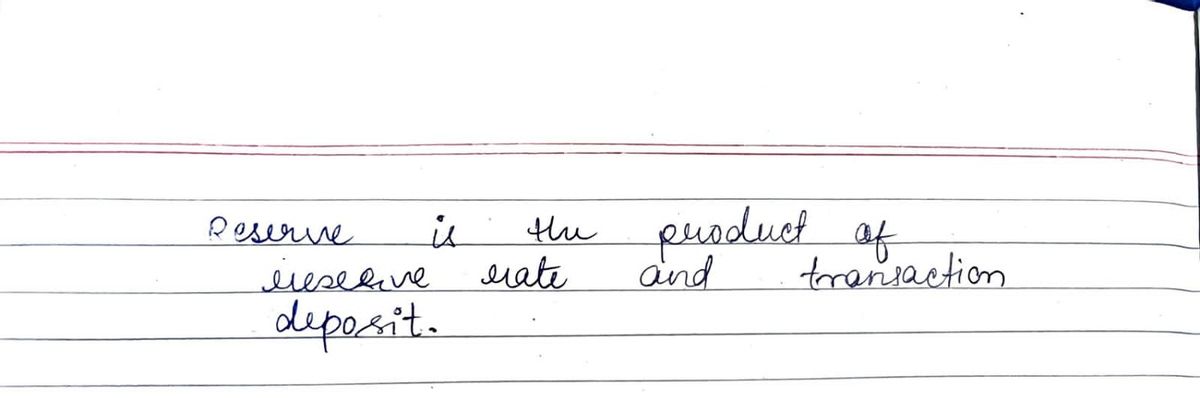 Reserve is the product of
reserve rate and transaction
deposit.